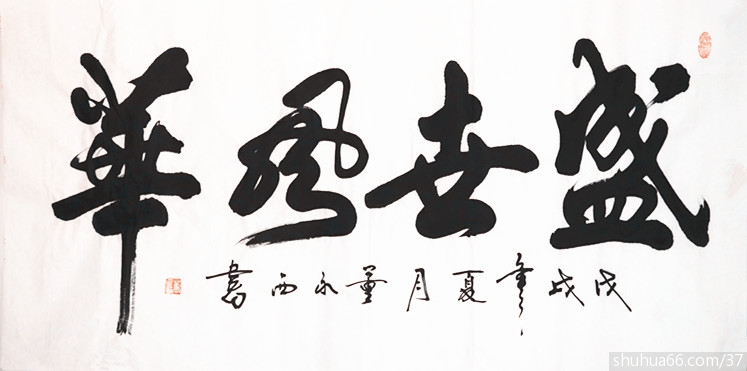 盛世風華
戊戌年夏月董永西書
shuhua66.com/37